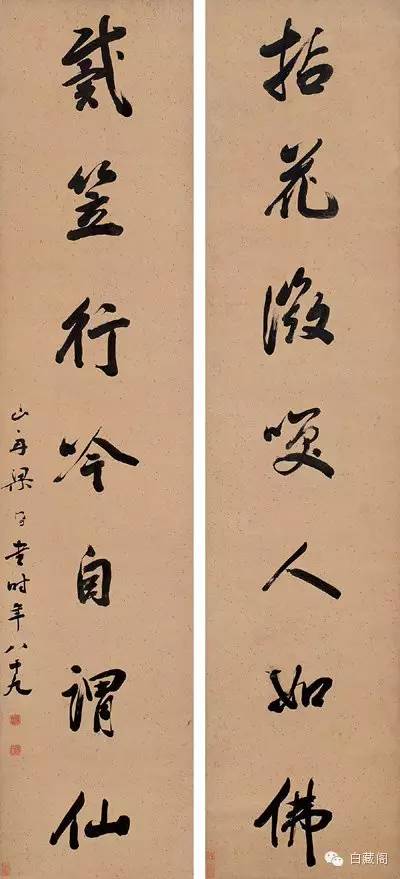 拈花微咲人如佛
戴笠行吟自謂仙
山舟梁同書時年八十九
白藏阁